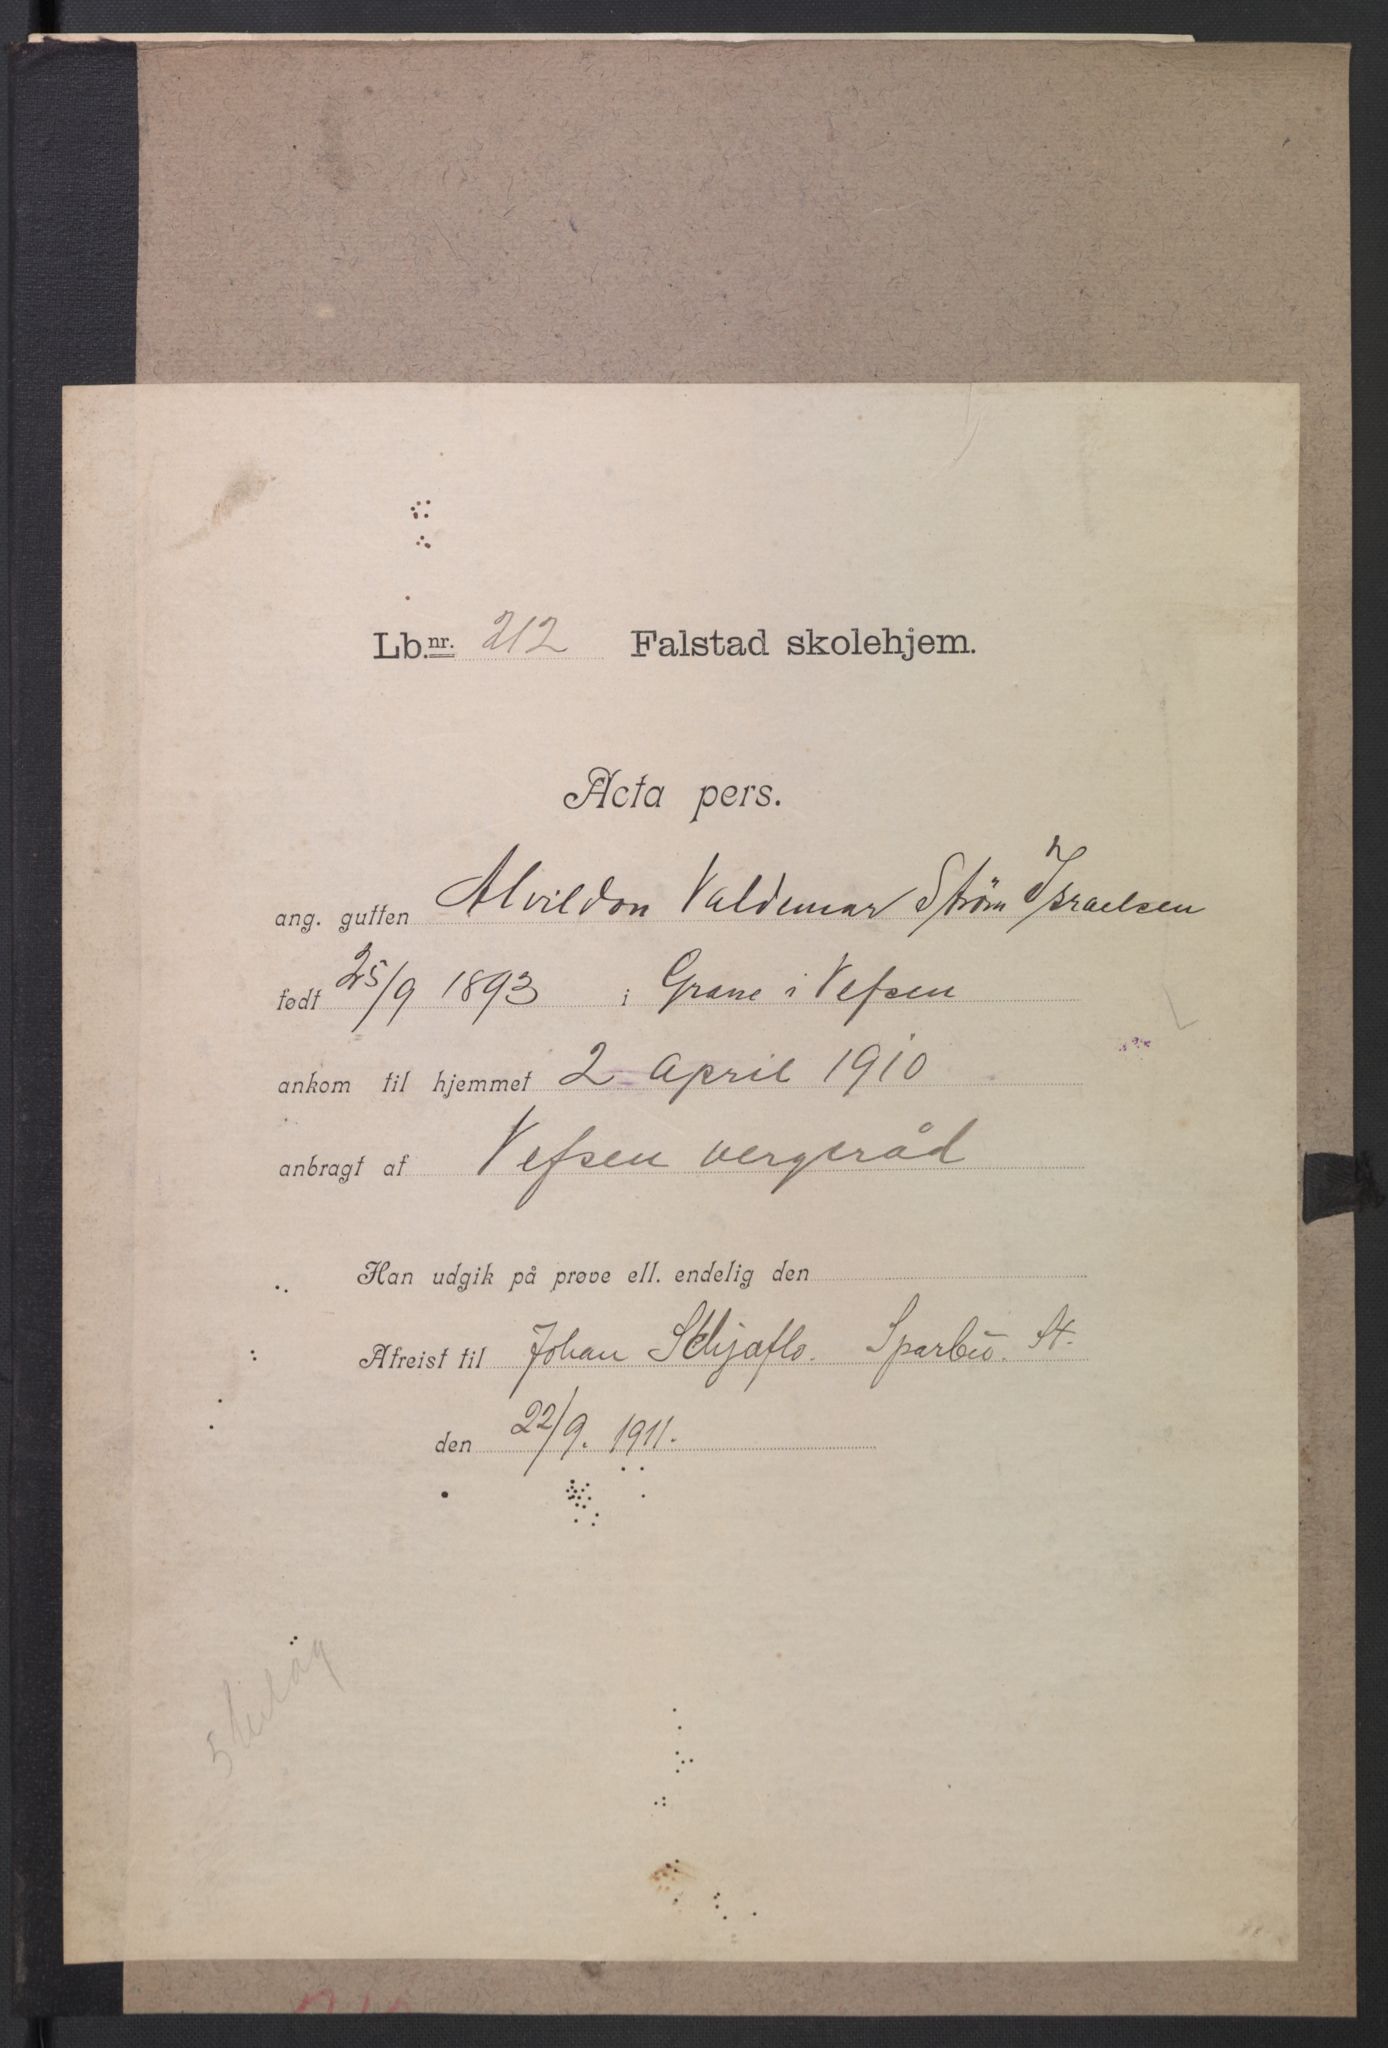 Lb.nr. 212 Falstad skolehjem.
Acta pers.
ang. gutten Alvildon Valdemar Ström Israelsen
født 25/9 1893 i Grane i Vefsen
ankom til hjemmet 2 april 1910
anbragt af Vefsen vergeråd
Han udgik på prøve ell. endelig den
Afreist til Johan Skjaflo. Sparbu. St.
den 22/9. 1911.
5